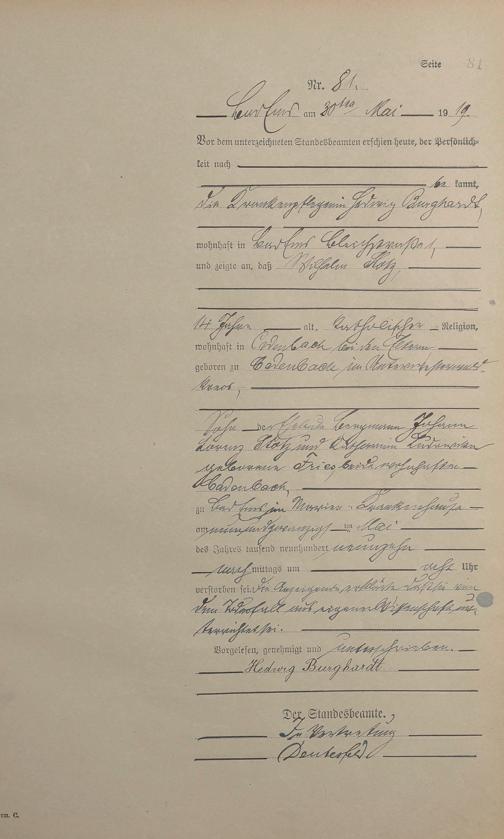 Seite 81
Nr. 81.
Bad Ems am 30ten Mai 1919.
Vor dem unterzeichneten Standesbeamten erschien heute, der Persönlich-
keit nach
be kannt,
die Krankenpflegerin Hedwig Burghardt,
wohnhaft in Bad Ems Bleichstraße 1,
und zeigte an, daß Wilhelm
Jahre alt, katholischer Religion,
wohnhaft in Cadenbach bei den Eltern
geboren zu Cadenbach, im Unterwesterwald-
kreis,
Sohn der Eheleute Bergmann Johann
Lorenz und Katharina
geborene Fries, beide wohnhaft in
Cadenbach,
zu Bad Ems im Marien-Krankenhause
am neunundzwanzigsten Mai
des Jahres tausend neunhundert neunzehn
nach mittags um acht Uhr
verstorben sei. Die Anzeigende erklärte, daß sie von
dem Todesfall aus eigener Wissenschaft un-
terrichtet sei.
Vorgelesen, genehmigt und unterschrieben.
Hedwig Burghardt.
Der Standesbeamte.
In Vertretung